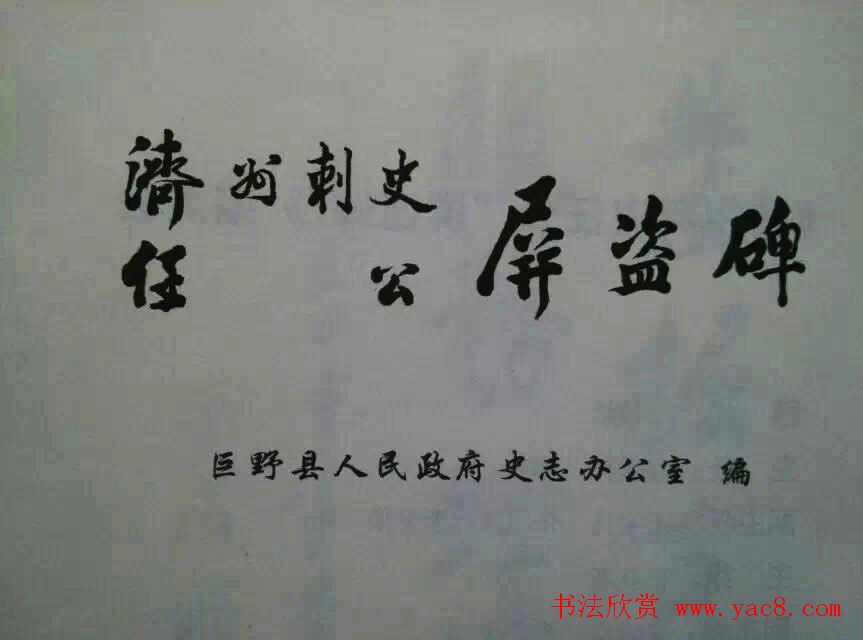 濟州刺史
任公
屏盗碑
巨野县人民政府史志办公室 编
书法欣赏 www.yac8.com